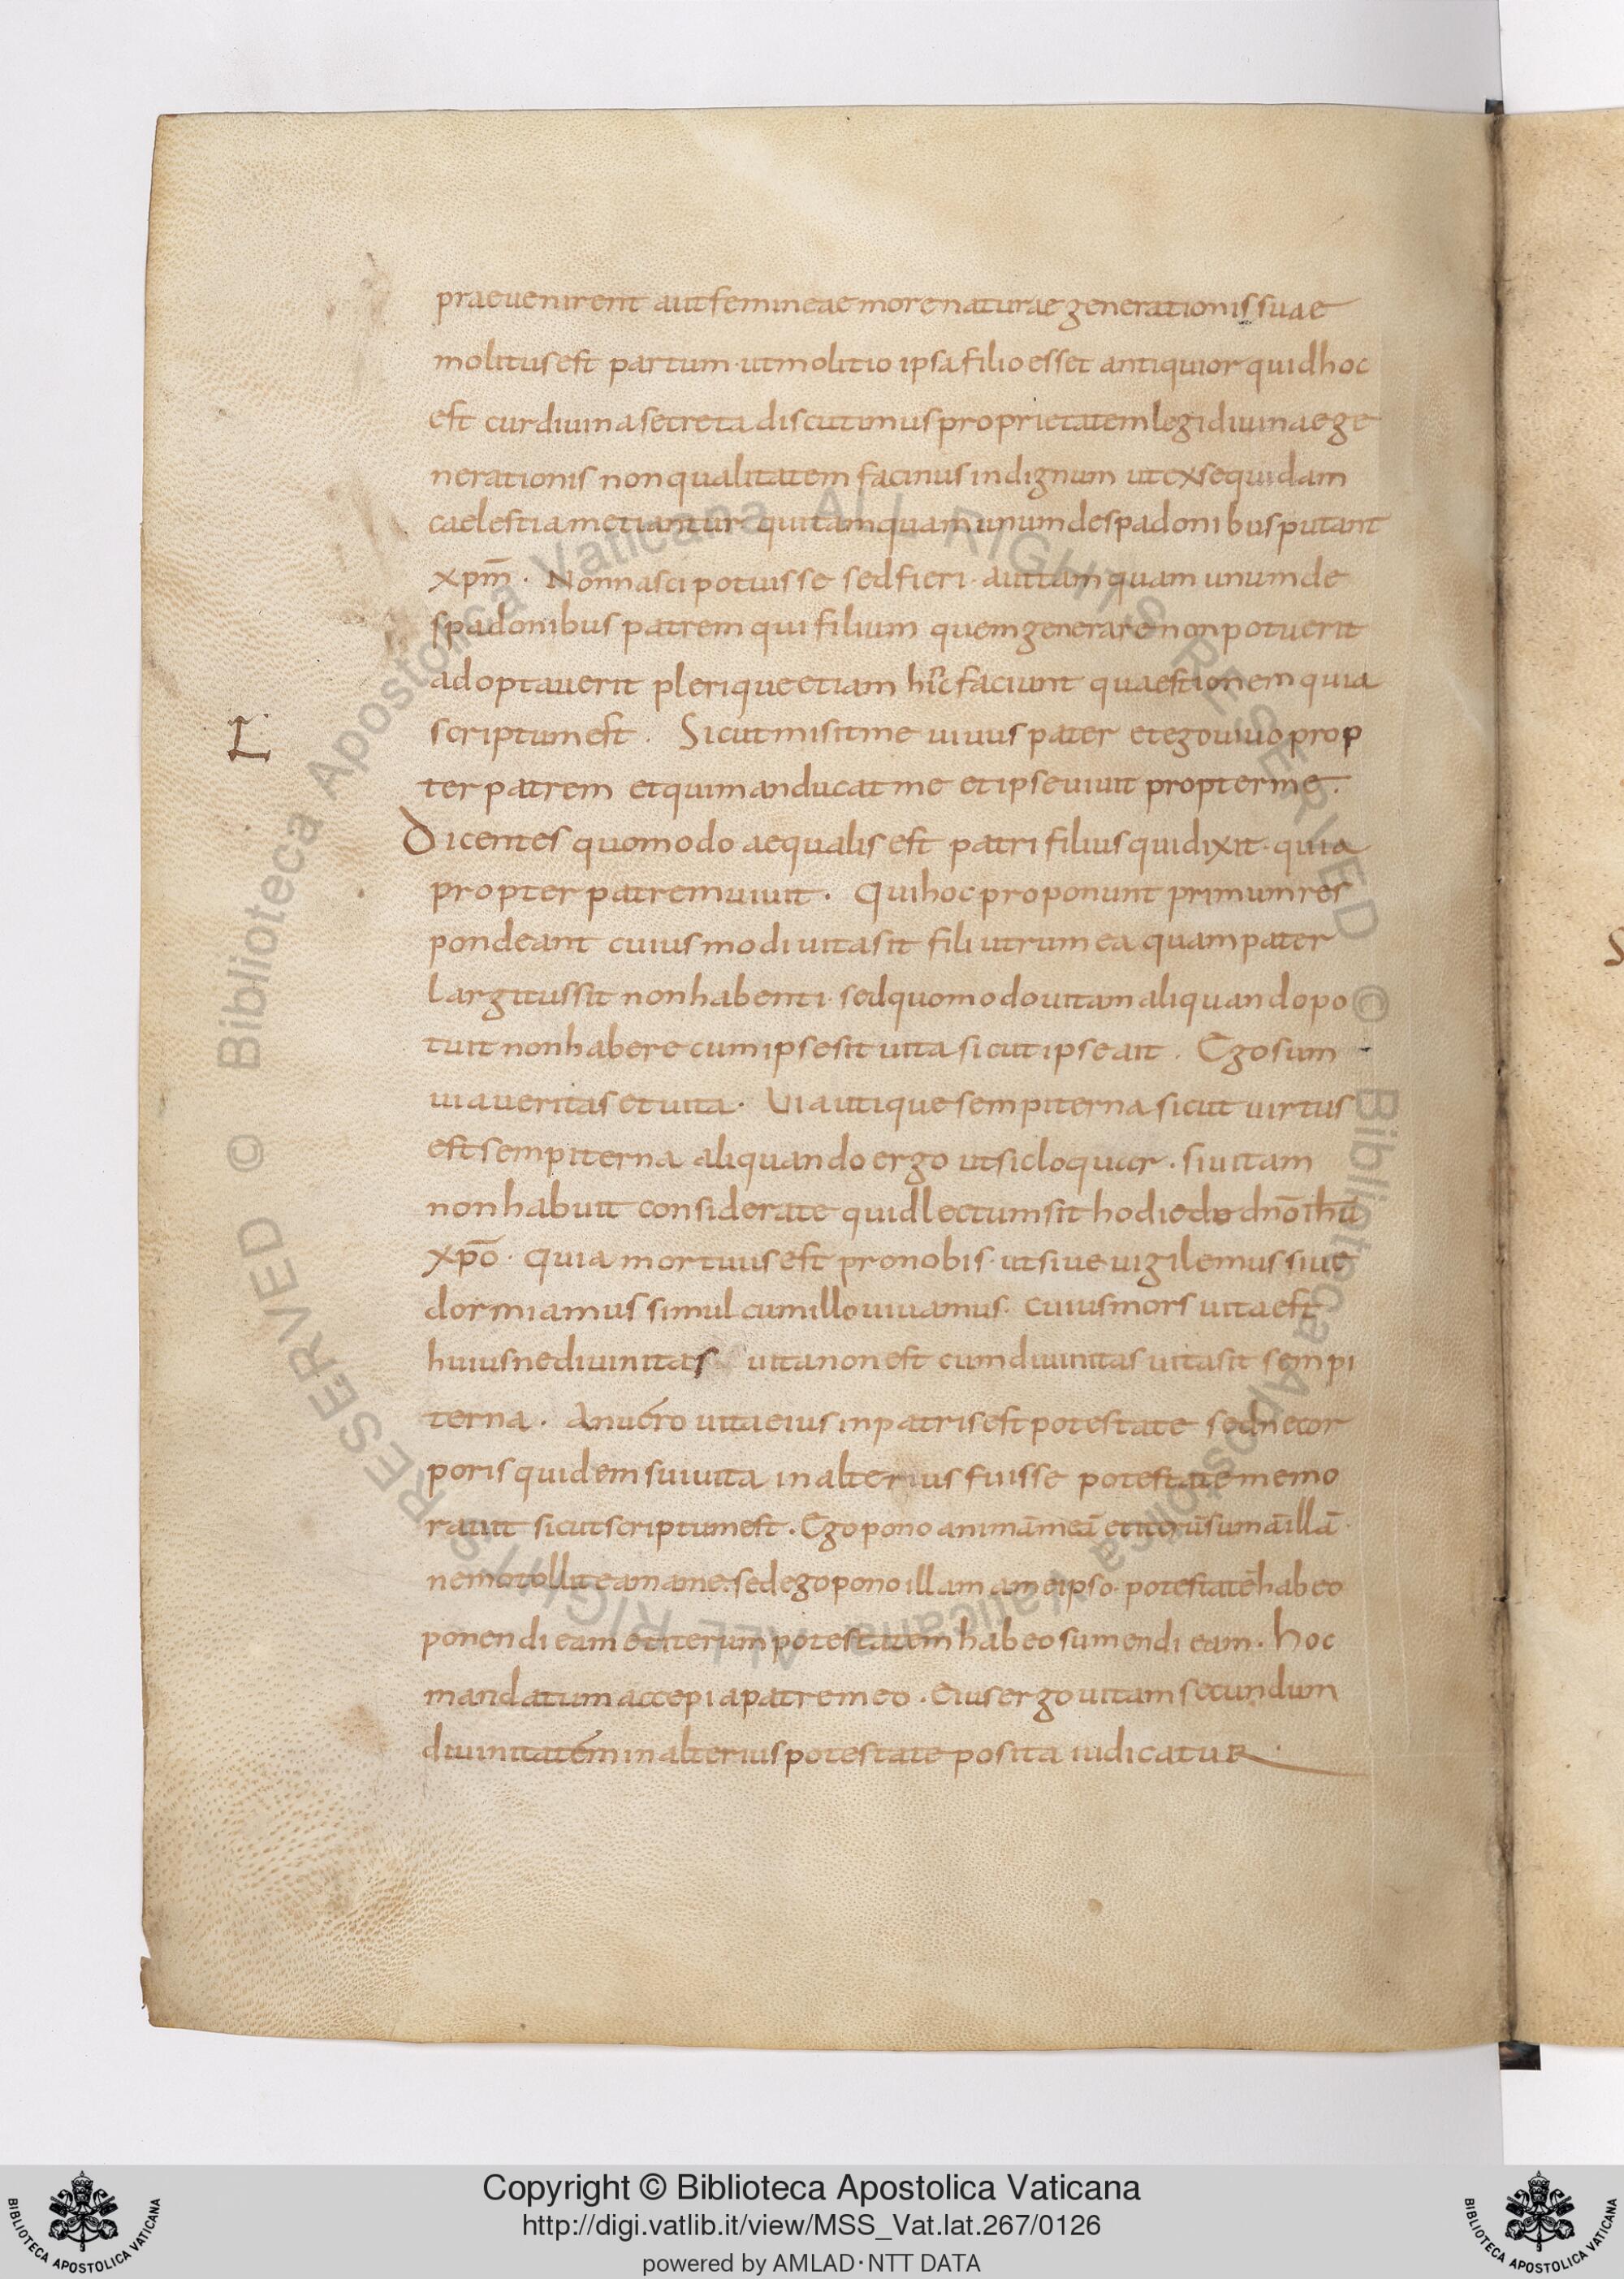 praeuenirent aut femineae more naturae generationis suae
molitus est partum · ut molitio ipsa filio esset antiquior quid hoc
est cur diuina secreta discutimus proprietatem legi diuinae ge
nerationis non qualitatem facinus indignum ut exsequi dam
caelestia metiantur qui tamquam unum de spadonibus putant
xpm̄ · Non nasci potuisse sed fieri · aut tamquam unum de
spadonibus patrem qui filium quem generare non potuerit
adoptauerit plerique etiam hic faciunt quaestionem quia
L
scriptum est . Sicut misit me uiuus pater et ego uiuo prop
ter patrem et qui manducat me et ipse uiuit propter me .
Dicentes quomodo aequalis est patri filius qui dixit · quia
propter patrem uiuit . Qui hoc proponunt primum res
pondeant cuius modi uita sit fili utrum ea quam pater
largitus sit non habenti · sed quomodo uitam aliquando po
tuit non habere cum ipse sit uita sicut ipse ait . Ego sum
uia ueritas et uita . Vita utique sempiterna sicut uirtus
est sempiterna aliquando ergo ut sic loquar . si uitam
non habuit considerate quid lectum sit hodie de dnō ihū
xpō · Quia mortuus est pro nobis · ut siue uigilemus siue
dormiamus simul cum illo uiuamus · cuius mors uita est
huius ne diuinitas uita non est cum diuinitas uita sit sempi
terna . An uero uita eius in patris est potestate sed ne cor
poris quidem sui uita in alterius fuisse potestate memo
rauit sicut scriptum est . Ego pono animā meā et iterū sumā illā ·
nemo tollit eam a me · sed ego pono illam a me ipso · potestatē habeo
ponendi eam et iterum potestatem habeo sumendi eam . hoc
mandatum accepi a patre meo . Eius ergo uitam secundum
diuinitatem in alterius potestate posita iudicatur .
Copyright © Biblioteca Apostolica Vaticana
http://digi.vatlib.it/view/MSS_Vat.lat.267/0126
powered by AMLAD · NTT DATA
BIBLIOTECA APOSTOLICA VATICANA
BIBLIOTECA APOSTOLICA VATICANA
© Biblioteca Apostolica Vaticana ALL RIGHTS RESERVED © Biblioteca Apostolica Vaticana ALL RIGHTS RESERVED